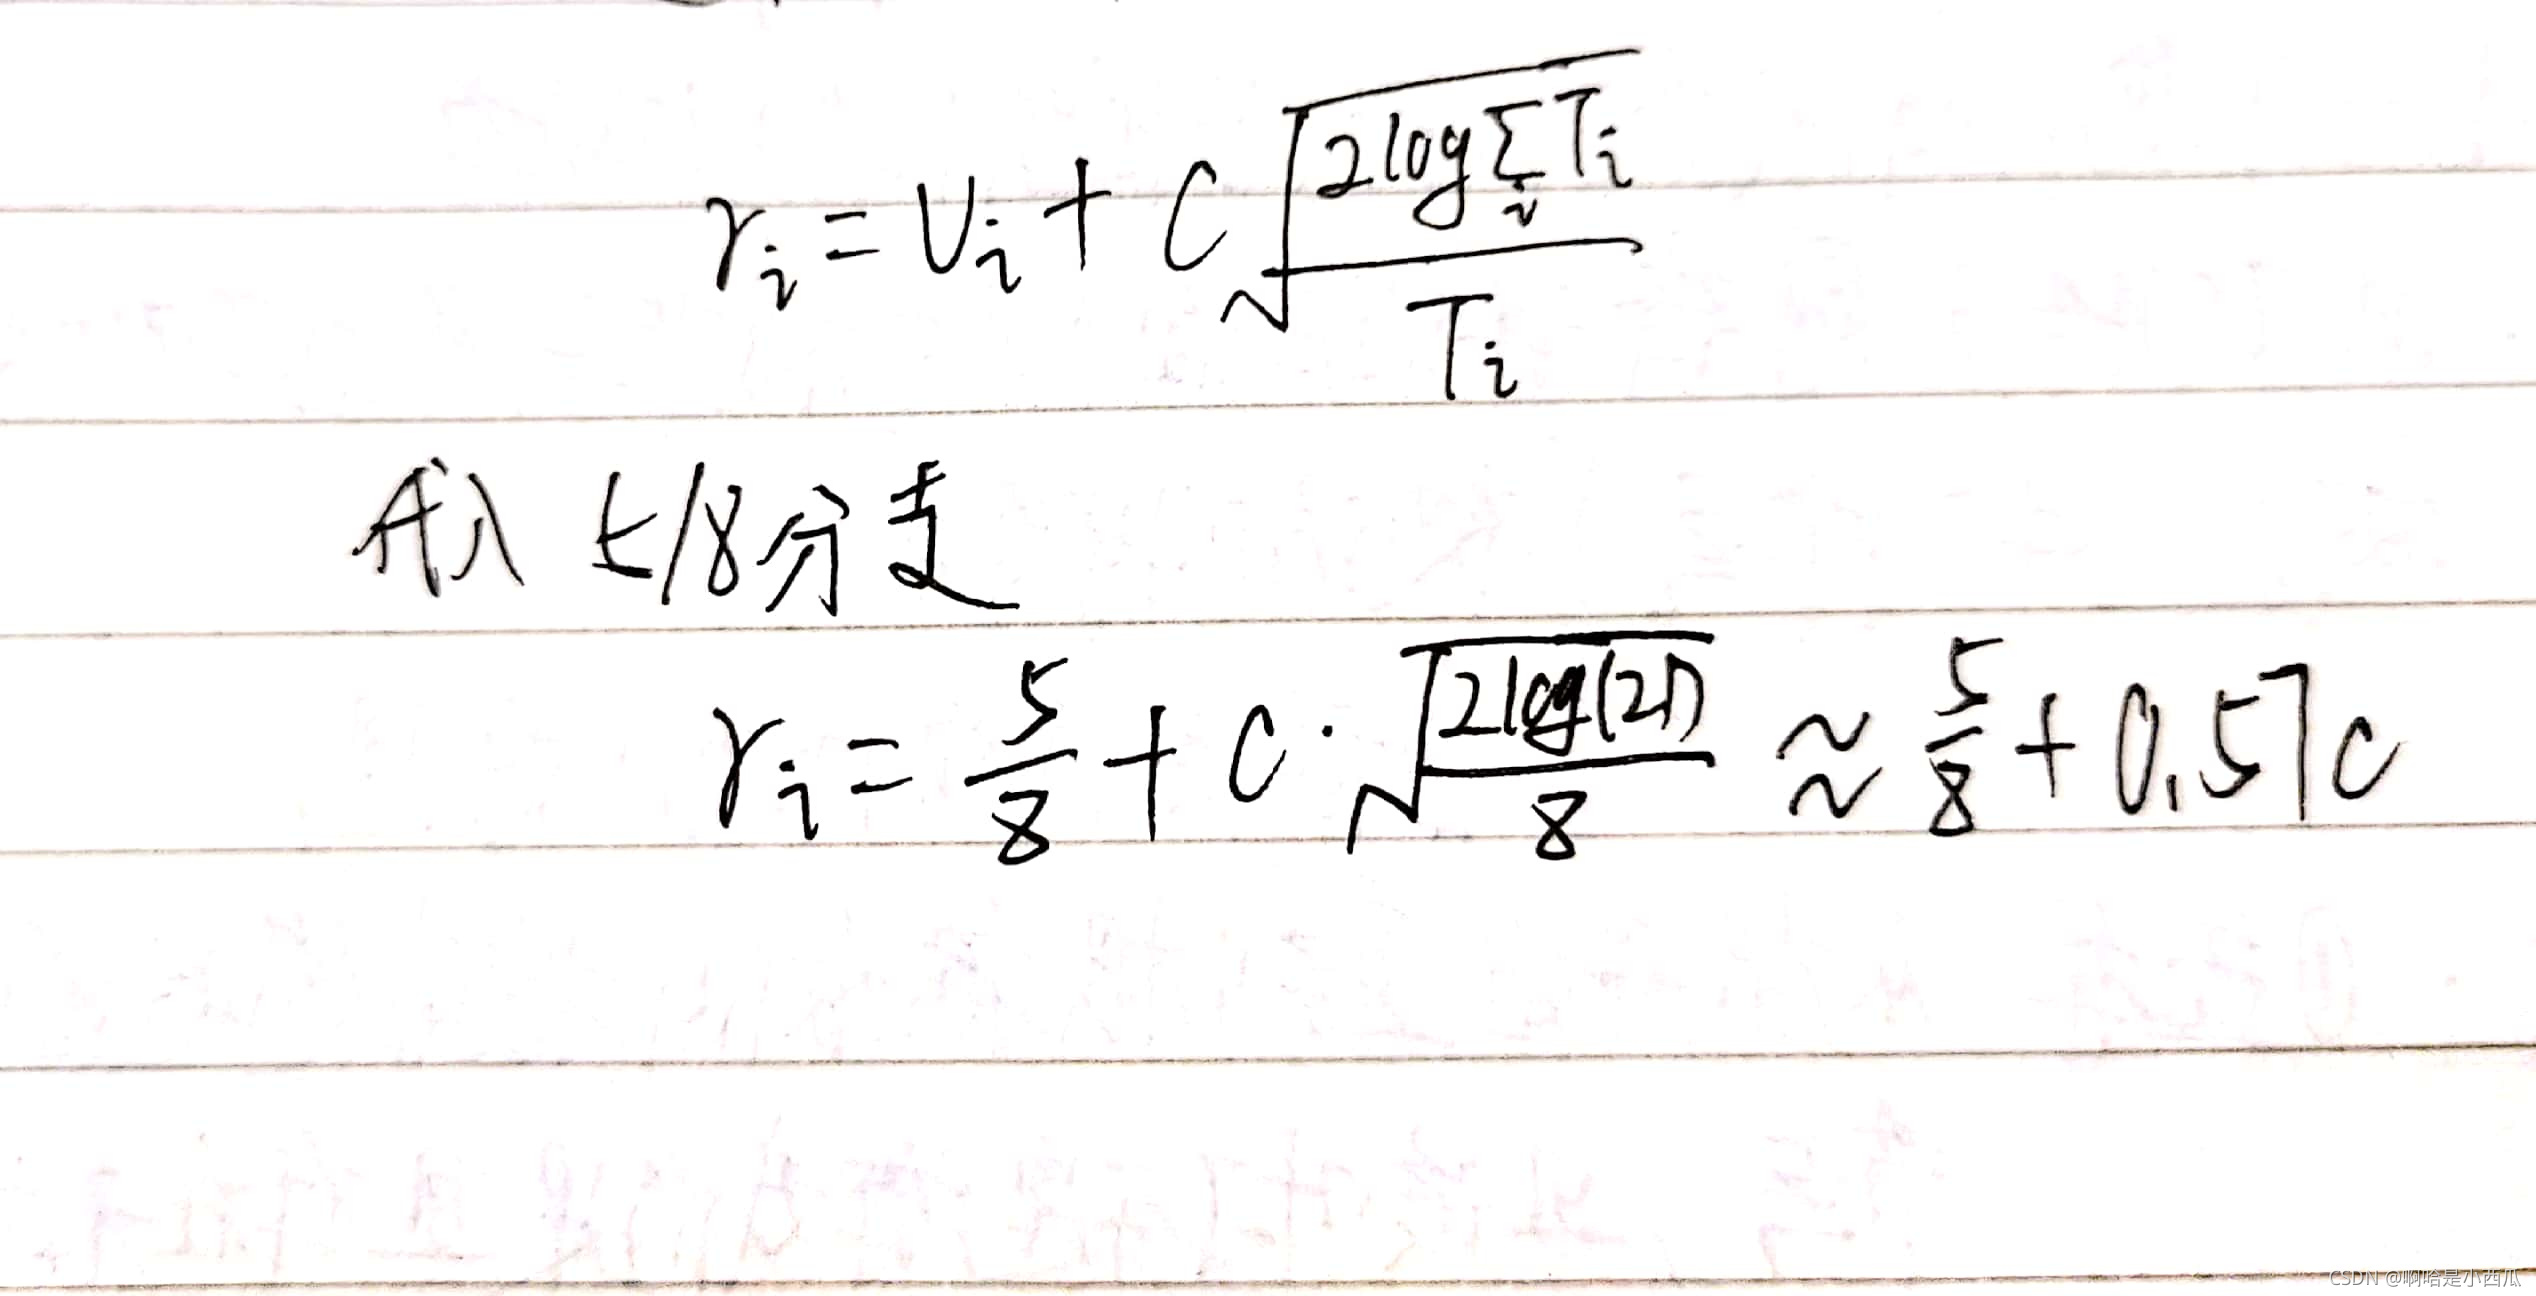 r_i = v_i + C√(2log∑_i T_i / T_i)
代入 5/8分支
r_i = 5/8 + C·√(2log(21) / 8) ≈ 5/8 + 0.57C
CSDN @啊哈是小西瓜